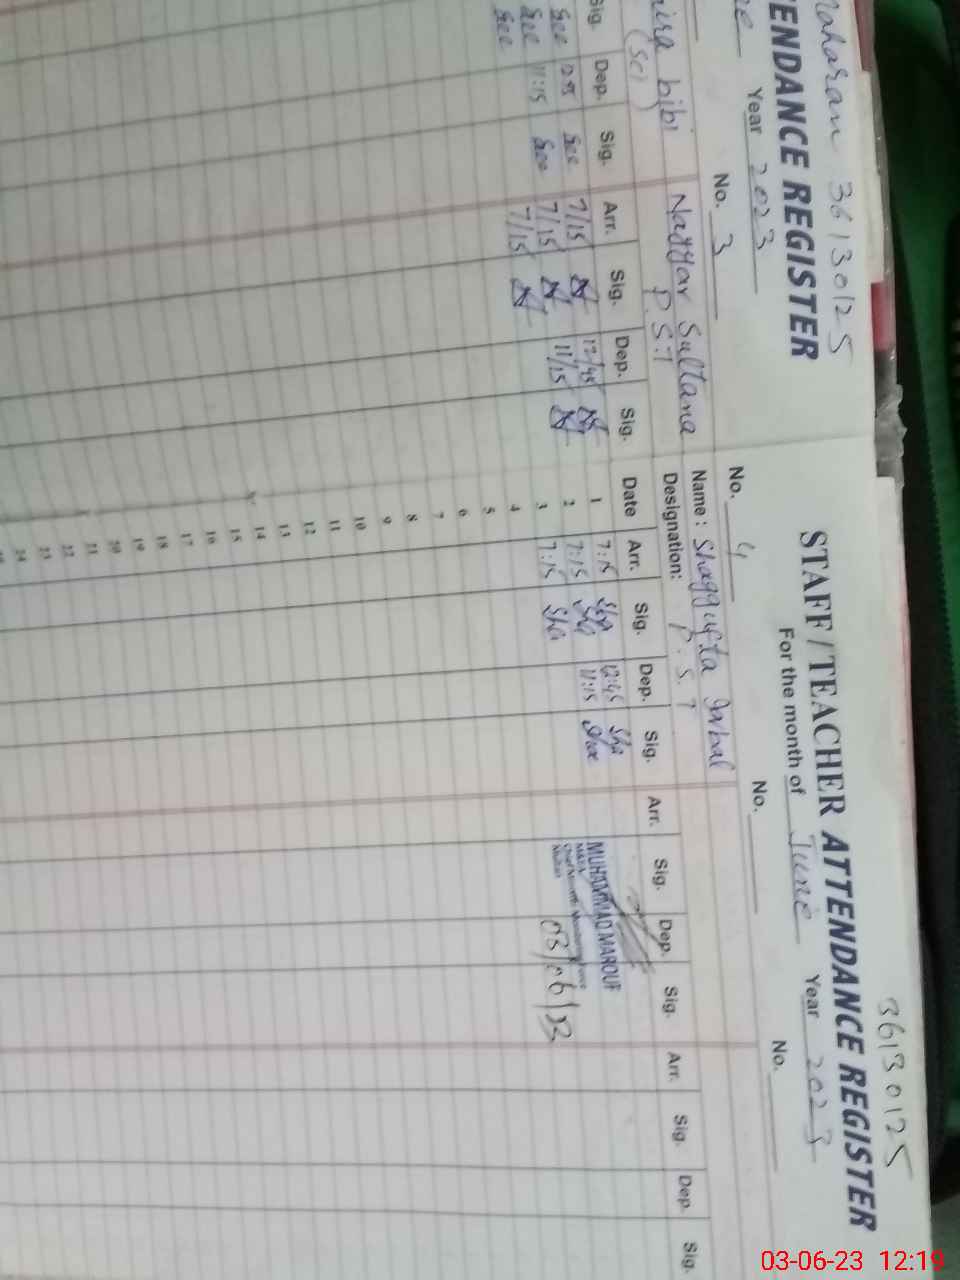 36130125
TENDANCE REGISTER
Year 2023
No. 3
bibi
Nayyar Sultana
P.S.T
Sig. Dep. Sig. Arr. Sig. Dep. Sig.
7/15 12/45
11:15 7/15 11/15
7/15
36130125
STAFF / TEACHER ATTENDANCE REGISTER
For the month of June Year 2023
No. 4 No. No.
Name: Shaggufta
Designation: P.S.T
Date Arr. Sig. Dep. Sig. Arr. Sig. Dep. Sig. Arr. Sig. Dep. Sig.
1 7:15 Sha 12:45 Sha
2 7:15 Sha 11:15 Sha
3 7:15 Sha
4
5
6
7
8
9
10
11
12
13
14
15
16
17
18
19
20
21
22
23
24
MUHAMMAD MAROUF
03/06/23
03-06-23 12:19